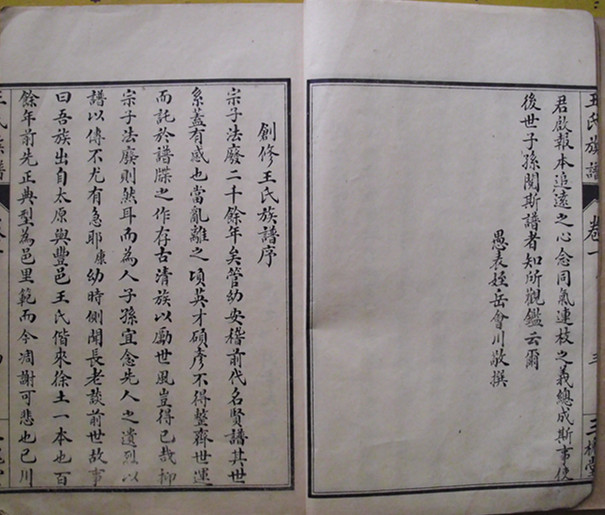 君啟報本追遠之心念同氣連枝之義總成斯事使
後世子孫閱斯譜者知所觀鑑云爾
愚表姪岳會川敬撰
王氏族譜
卷一
三
三槐堂
創修王氏族譜序
宗子法廢二千餘年矣管幼安稽前代名賢譜其世
系蓋有感也當亂離之頃英才碩彥不得整齊世運
而託於譜牒之作存古清族以勵世風豈得已哉抑
宗子法廢則然耳而為人子孫宜念先人之遺烈以
譜以傳不尤有急耶康幼時側聞長老談前世故事
曰吾族出自太原與豐邑王氏偕來徐土一本也百
餘年前先正典型為邑里範而今凋謝可悲也已川
王氏族譜